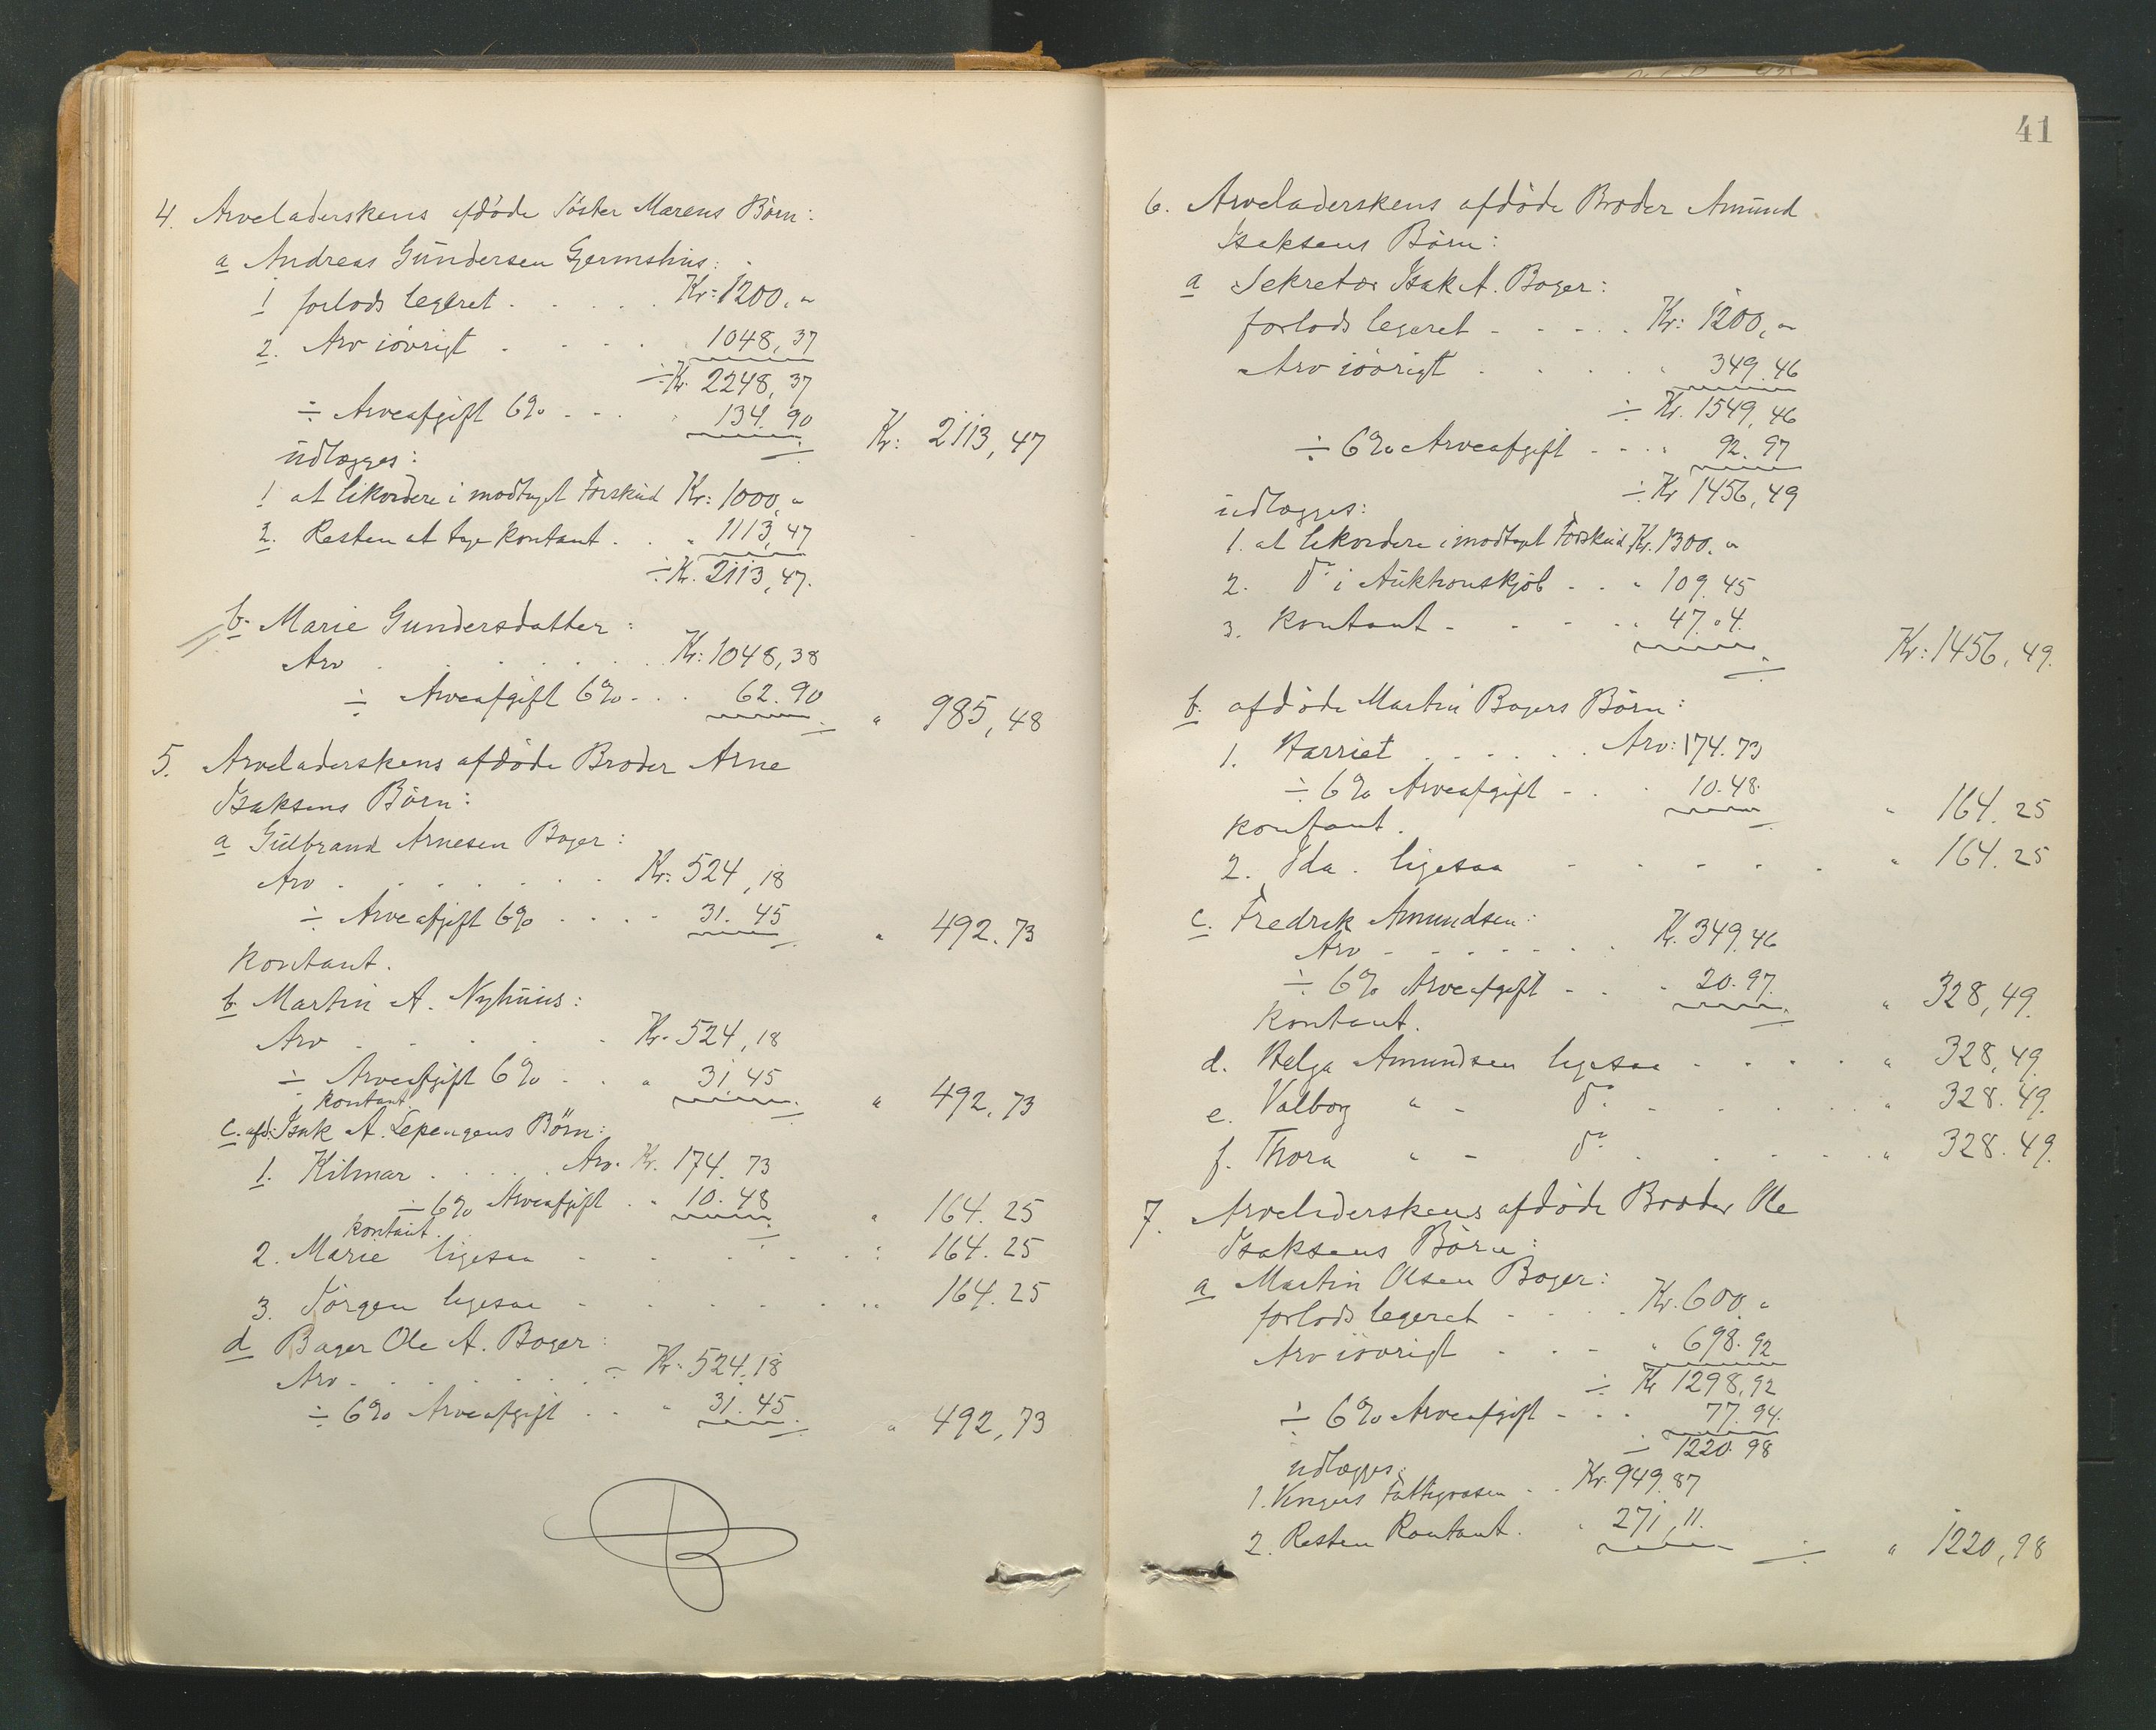 4. Arveladerskens afdöde Söster Marens Börn:
a Andreas Gundersen Gjermshus:
1 forlods legeret . . . . Kr: 1200. "
2. Arv iövrigt . . . . 1048,37
÷ Kr. 2248,37
÷ Arveafgift 6% - . . " 134.90 Kr: 2113,47
udlægges:
1 at likvidere i modtaget Forskud Kr: 1000, "
2. Resten at tage kontant . . " 1113,47
÷ Kr. 2113,47.
b. Marie Gundersdatter:
Arv . . . . . . Kr: 1048,38
÷ Arveafgift 6% - . . 62.90 " 985,48
5. Arveladerskens afdöde Broder Arne
Isaksens Börn:
a Gulbrand Arnesen Boger:
Arv . . . . . . . Kr: 524,18
÷ Arveafgift 6% . . . - 31.45 " 492.73
Kontant.
b Martin A. Nyhuus:
Arv . . . . . Kr. 524,18
÷ Arveafgift 6% . . " 31.45 " 492,73
kontant.
c. afd: Isak A. Lepengens Börn:
1. Hilmar . . . . Arv. Kr. 174.73
÷ 6% Arveafgift . " 10.48 " 164.25
kontant.
2. Marie ligesaa - . . . . . : 164.25
3. Jörgen ligesaa - . . . . . " 164.25
d Bager Ole A. Boger:
Arv - . . . . . . = Kr. 524.18
÷ 6% Arveafgift . . " 31.45 " 492,73
41
6. Arveladerskens afdöde Broder Amund
Isaksens Börn:
a Sekretær Isak A. Boger:
forlods legeret - . - . . Kr: 1200, "
Arv iövrigt . . . . " 349.46
÷ Kr. 1549,46
÷ 6% Arveafgift - - . . 92.97
÷ Kr 1456,49
udlægges:
1. at likvidere i modtaget Forskud Kr. 1300. "
2. do i Auktionskjöb - . " 109.45
3. kontant - . . . . " 47.04.
Kr: 1456,49.
b. afdöde Martin Bogers Börn:
1. Harriet . . . . . Arv: 174.73
÷ 6% Arveafgift - . . 10.48. " 164.25
kontant.
2. Ida. ligesaa - - - - . " 164.25
c. Fredrik Amundsen:
Arv - - - - - . . Kr. 349.46
÷ 6% Arveafgift - . - 20.97. " 328,49.
Kontant.
d. Helga Amundsen ligesaa - . . . " 328,49.
e. Valborg " - do - . . . . " 328.49.
f. Thora " - do . . . - . " 328.49.
7. Arveladerskens afdöde Broder Ole
Isaksens Börn:
a Martin Olsen Boger:
forlods legeret - . . . Kr. 600. "
Arv iövrigt . . - " 698.92
÷ Kr 1298,92
÷ 6% Arveafgift - . . 77.94.
÷ 1220.98
udlægges:
1. Vingers Fattigvæsen . . Kr. 949.87
2. Resten Kontant. . 271,11. " 1220,98